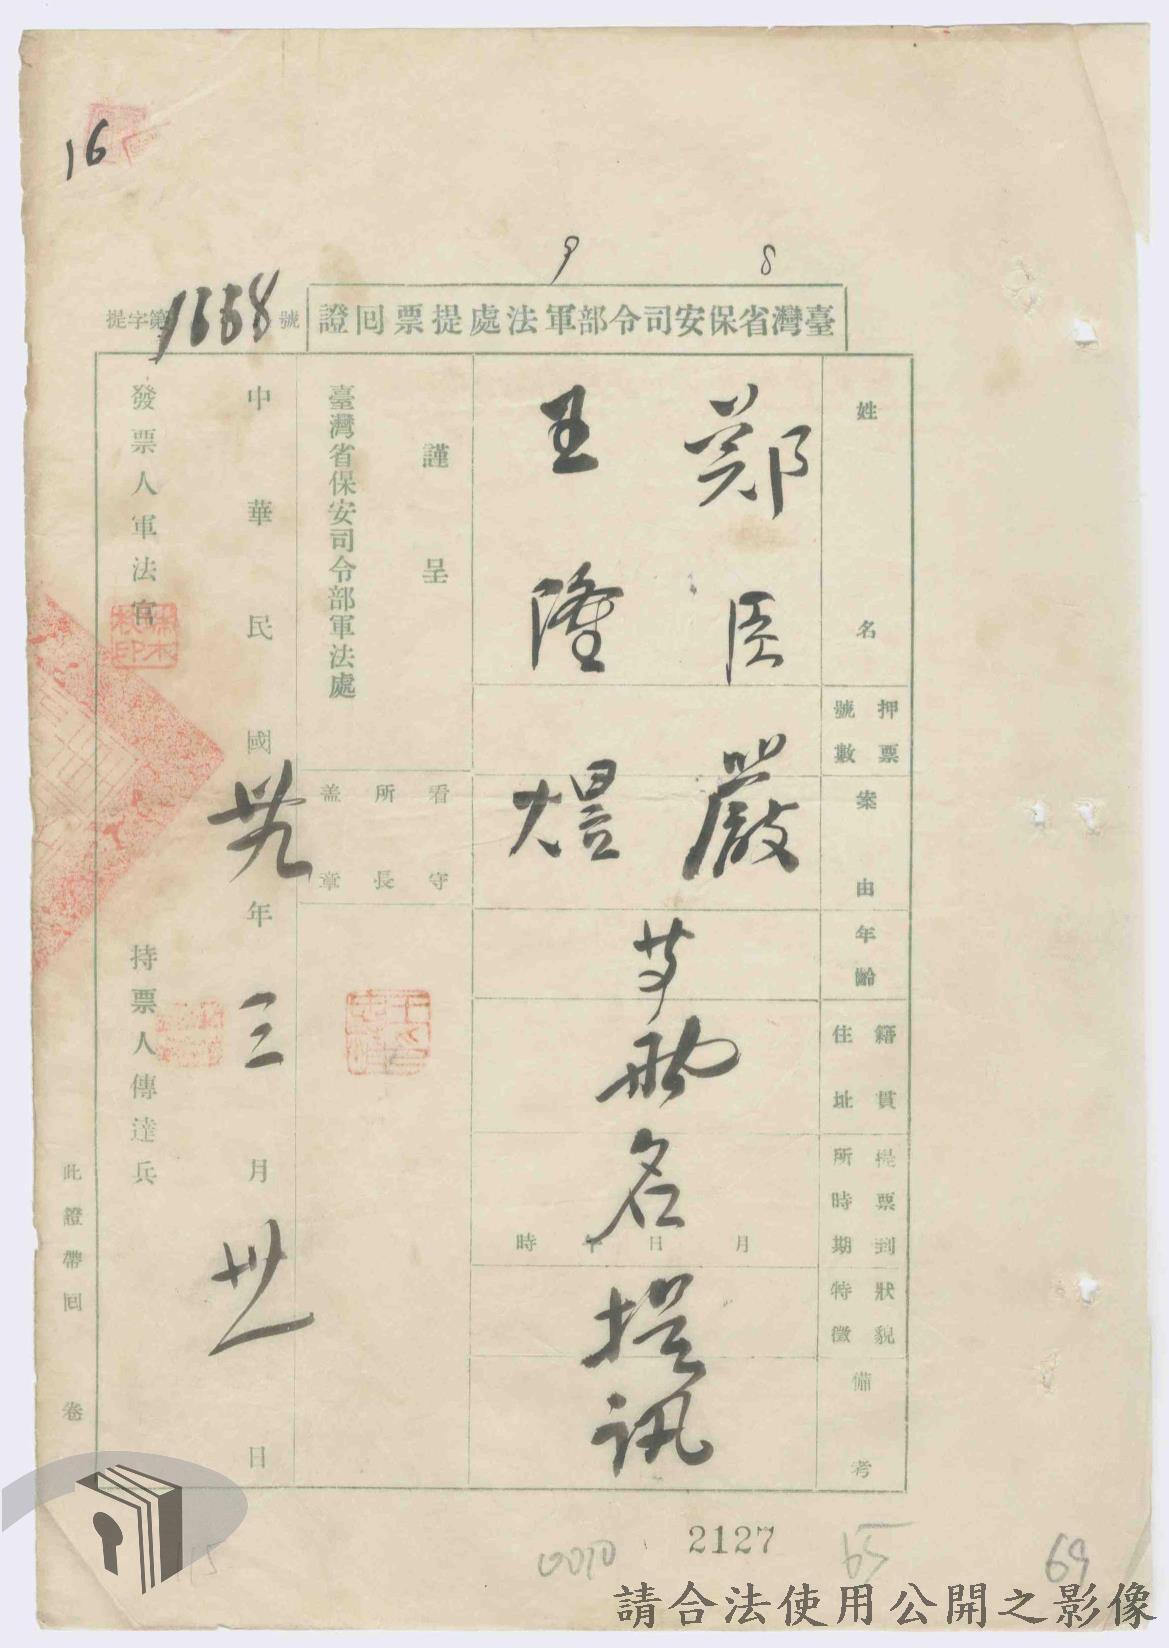 16
8
9
臺灣省保安司令部軍法處提票回證
提字第1658號
姓名
押票號數
案由
年齡
籍貫住址
提票到所時期
狀貌特徵
備考
鄭臣嚴
王隆煜
等兩名提訊
月日午時
謹呈
臺灣省保安司令部軍法處
看守所長蓋章
中華民國卅九年三月卅一日
發票人軍法官
持票人傳達兵
此證帶回卷
2127
65
69
15
請合法使用公開之影像